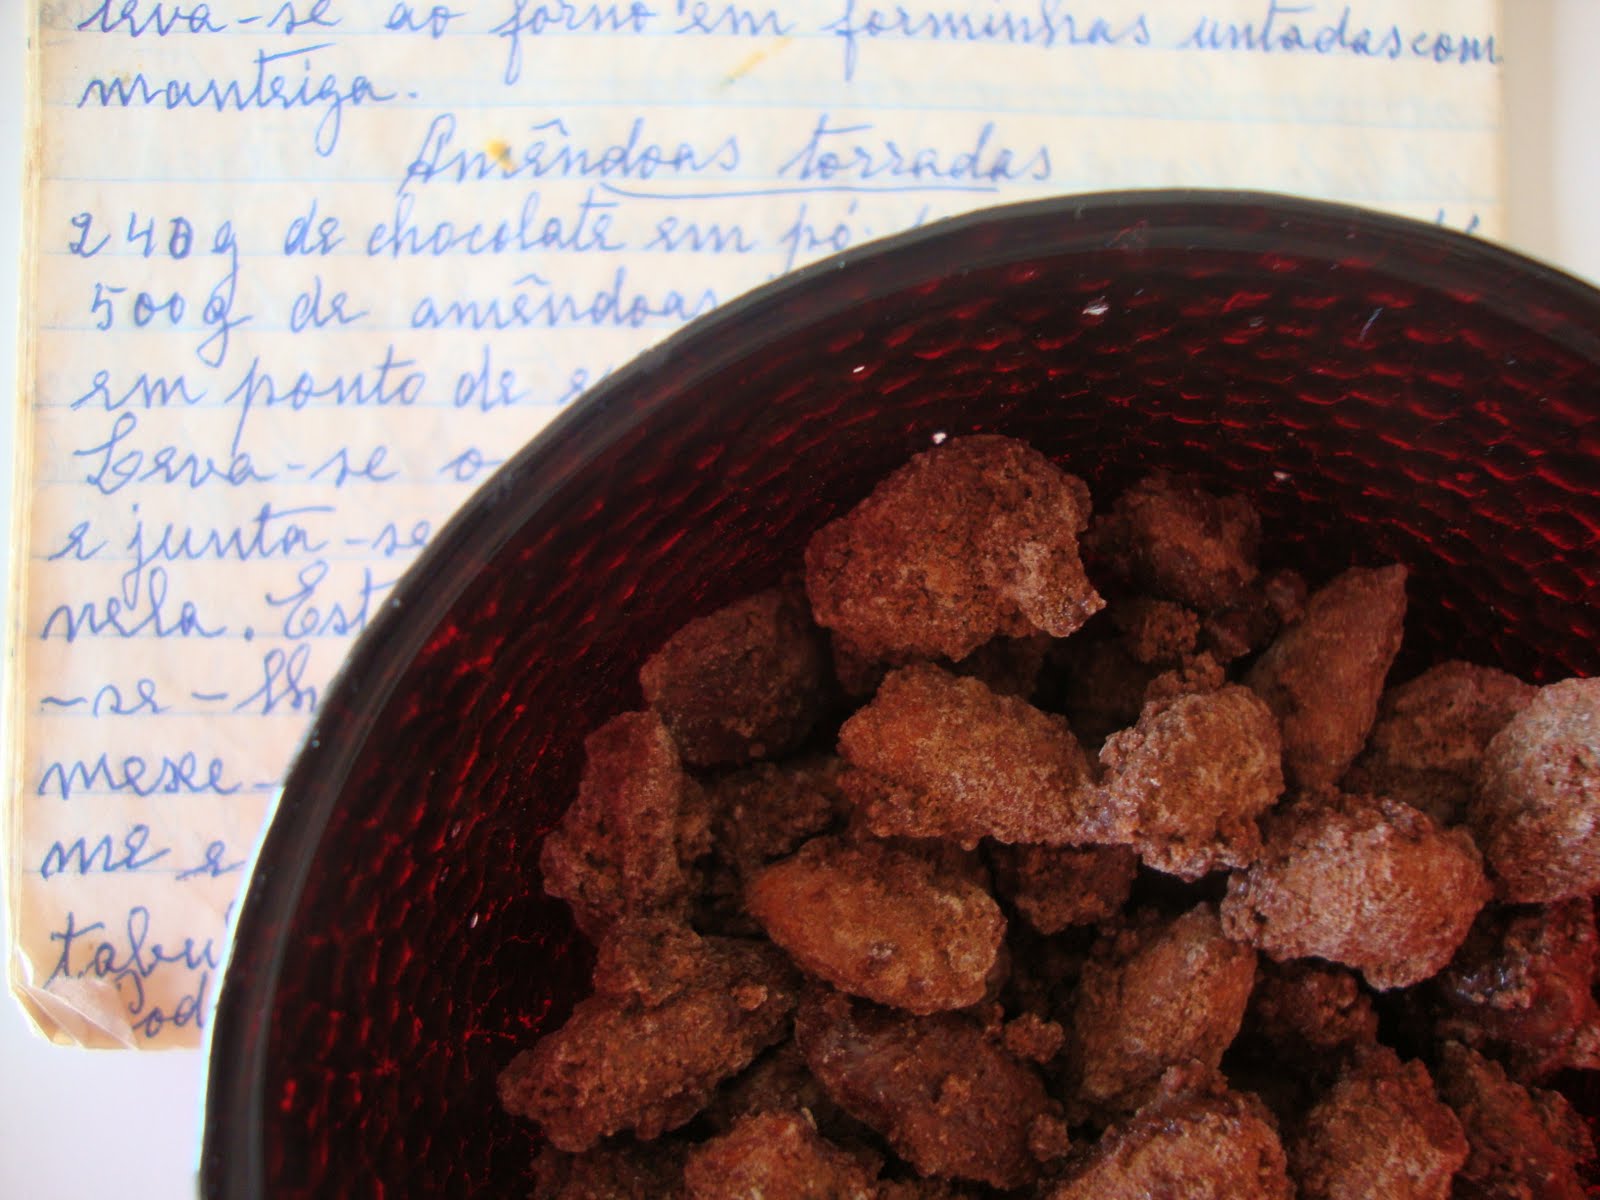 leva-se ao forno em forminhas untadas com
manteiga.
Amêndoas torradas
240g de chocolate em pó
500g de amêndoas
em ponto de
Leva-se o
e junta-se
nela. Est
-se-lh
mexe-
me e
tabu
od